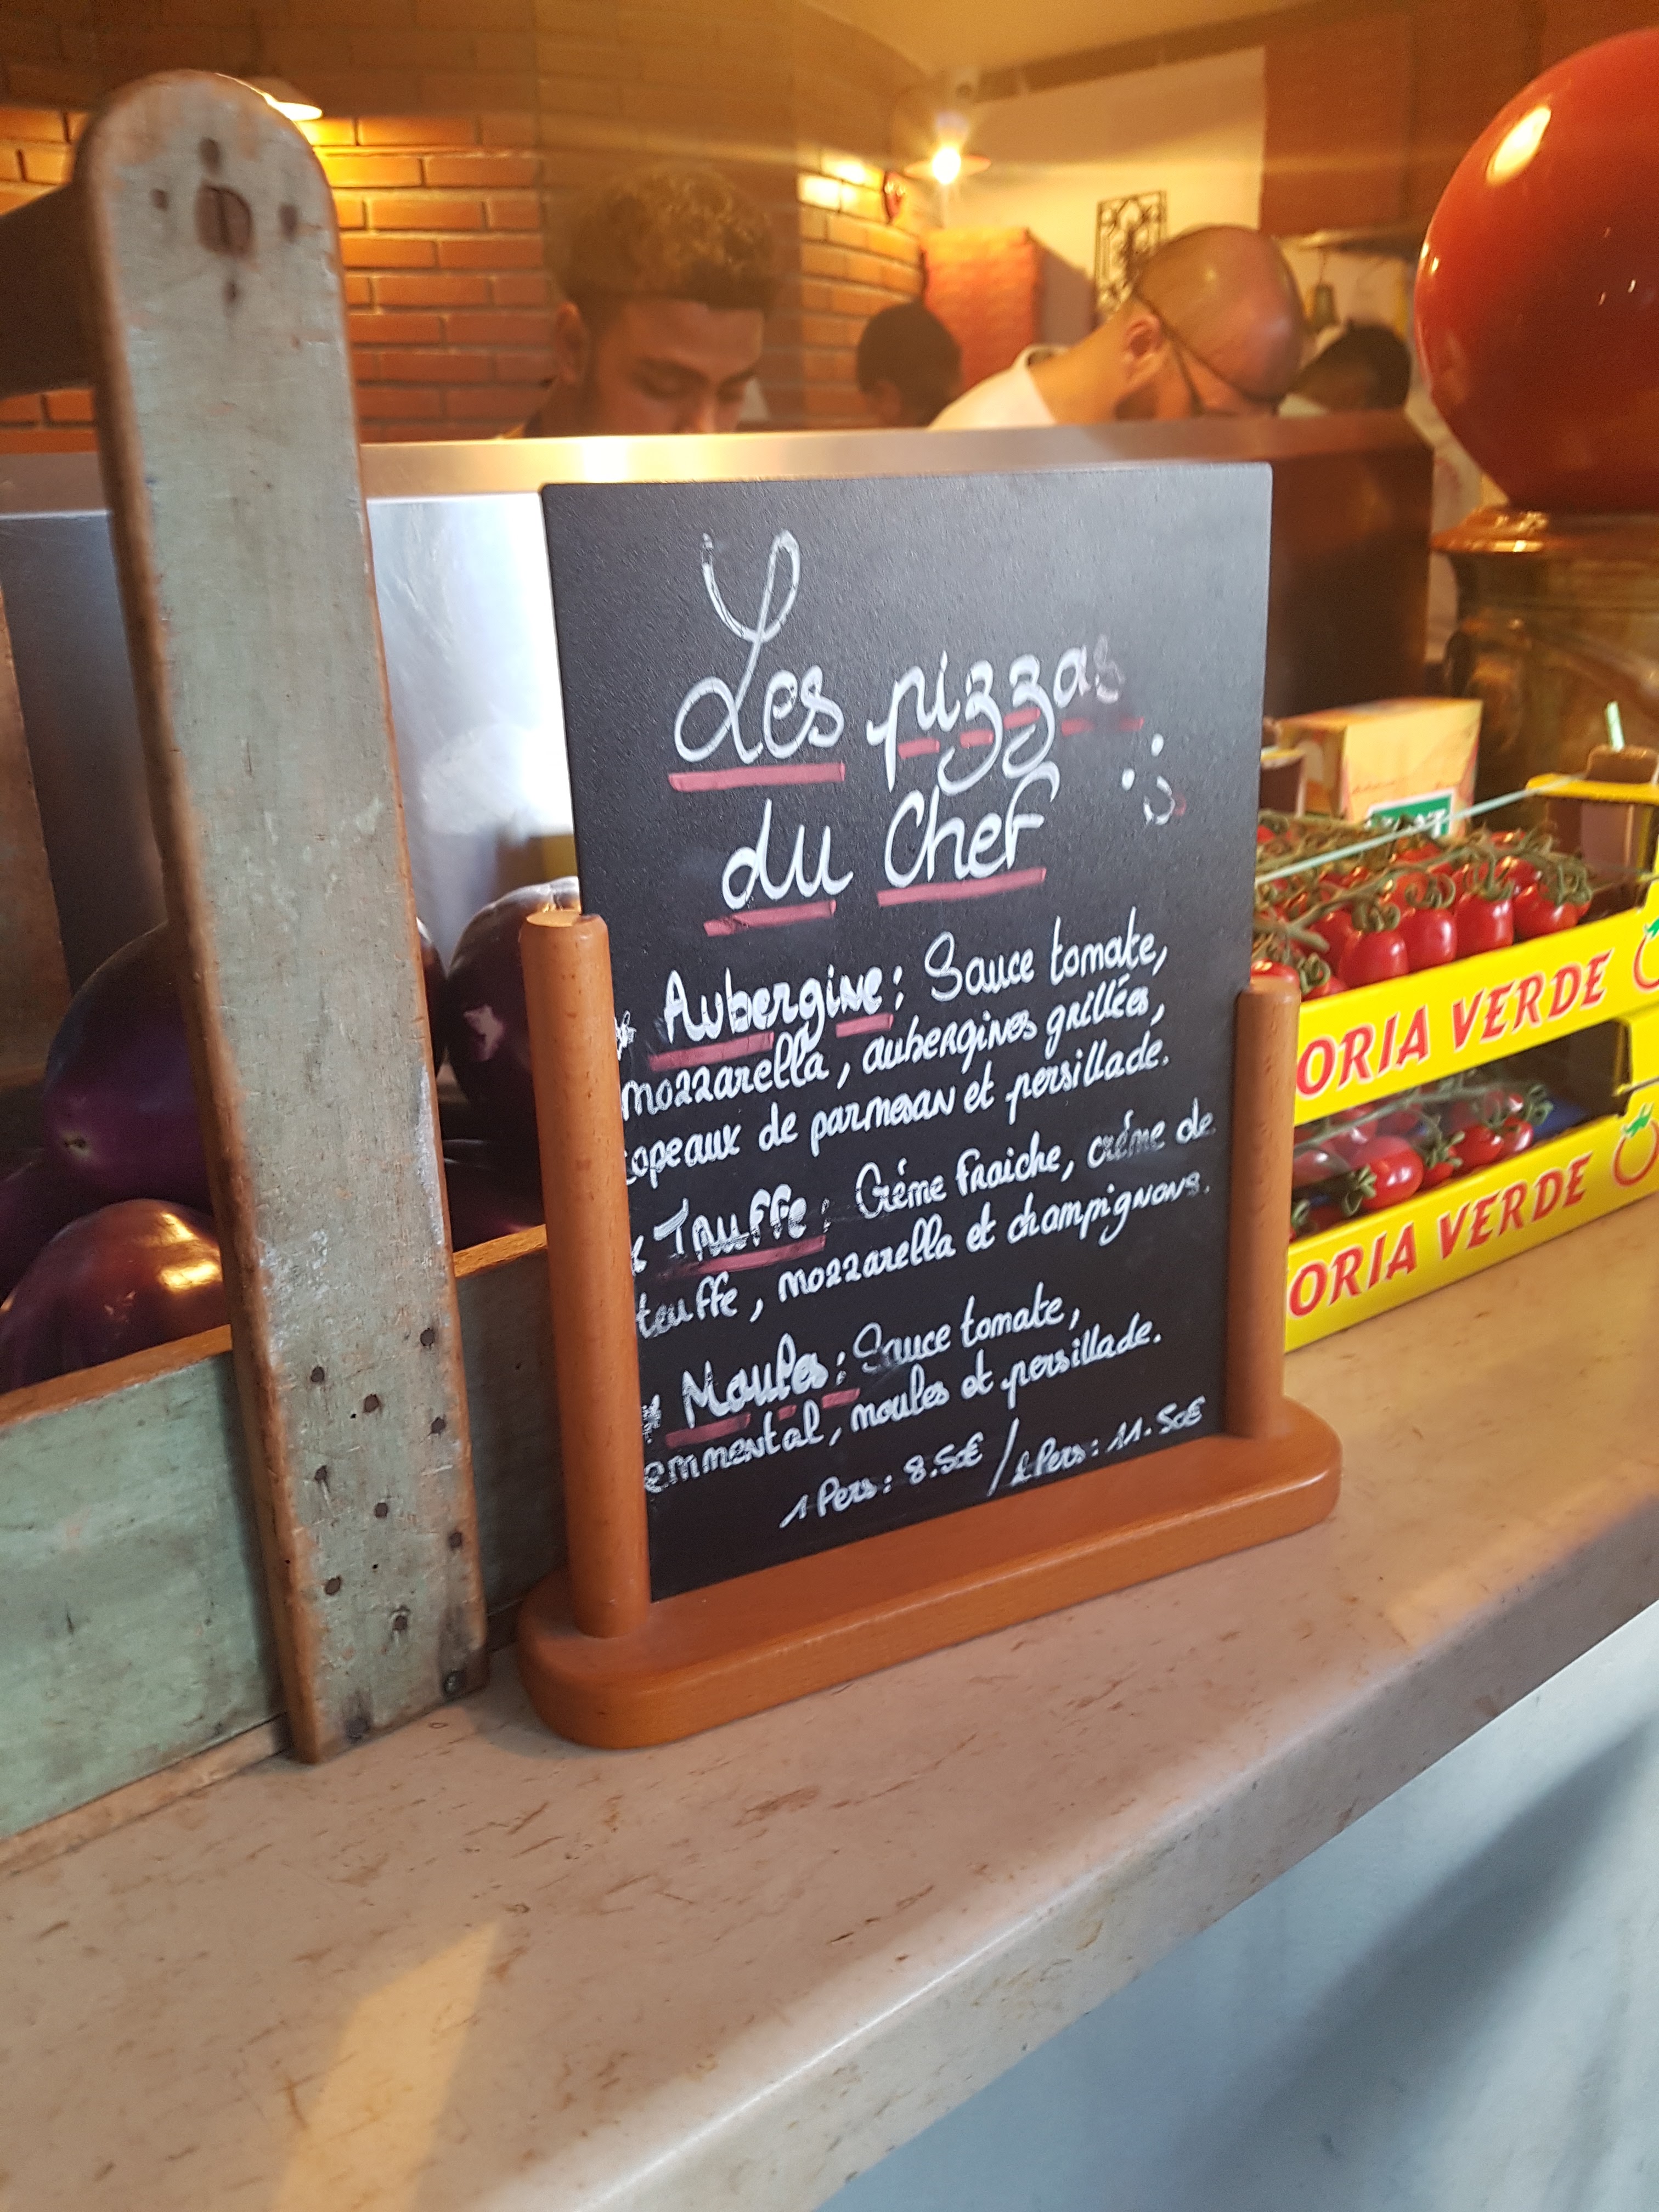 Les pizzas
du Chef
* Aubergine : Sauce tomate,
mozzarella, aubergines grillées,
copeaux de parmesan et persillade.
* Truffe : Crème fraiche, crème de
truffe, mozzarella et champignons.
* Moules : Sauce tomate,
emmental, moules et persillade.
1 Pers : 8.50€ / 2 Pers : 11.50€
ORIA VERDE
ORIA VERDE